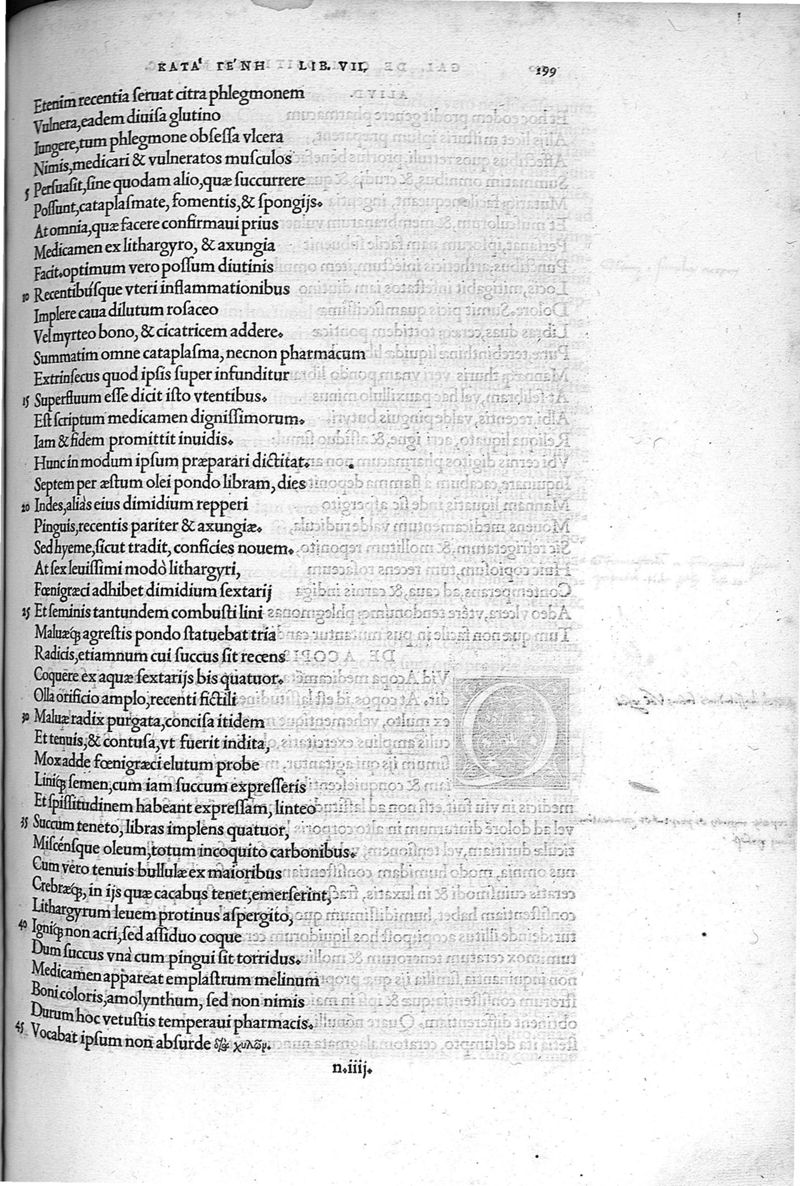 ΚΑΤΑ' ΓΕ'ΝΗ LIB. VII. 199
Etenim recentia seruat citra phlegmonem
Vulnera, eadem diuisa glutino
Iungere, tum phlegmone obsessa vlcera
Nimis, medicari & vulneratos musculos
5 Persuasit, sine quodam alio, quæ succurrere
Possunt, cataplasmate, fomentis, & spongijs.
At omnia, quæ facere confirmaui prius
Medicamen ex lithargyro, & axungia
Facit. optimum vero possum diutinis
10 Recentibúsque vteri inflammationibus
Implere caua dilutum rosaceo
Vel myrteo bono, & cicatricem addere.
Summatim omne cataplasma, necnon pharmacum
Extrinsecus quod ipsis super infunditur
15 Superfluum esse dicit isto vtentibus.
Est scriptum medicamen dignissimorum.
Iam & fidem promittit inuidis.
Hunc in modum ipsum præparari dictitat.
Septem per æstum olei pondo libram, dies
20 Indes, aliàs eius dimidium repperi
Pinguis, recentis pariter & axungiæ.
Sed hyeme, sicut tradit, conficies nouem.
At sex leuissimi modò lithargyri,
Fœnigræci adhibet dimidium sextarij
25 Et seminis tantundem combusti lini
Maluæq; agrestis pondo statuebat tria
Radicis, etiamnum cui succus sit recens
Coquere ex aquæ sextarijs bis quatuor.
Olla orificio amplo, recenti fictili
30 Maluæ radix purgata, concisa itidem
Et tenuis, & contusa, vt fuerit indita,
Mox adde fœnigræci elutum probe
Liniq; semen, cum iam succum expresseris
Et spissitudinem habeant expressam, linteo
35 Succum teneto, libras implens quatuor,
Miscénsque oleum, totum incoquito carbonibus.
Cum vero tenuis bullulæ ex maioribus
Crebræq;, in ijs quæ cacabus tenet, emerserint,
Lithargyrum leuem protinus aspergito,
40 Igniq; non acri, sed assiduo coque
Dum succus vnà cum pingui sit torridus.
Medicamen appareat emplastrum melinum
Boni coloris, amolynthum, sed non nimis
Durum hoc vetustis temperaui pharmacis.
45 Vocabat ipsum non absurde χυλῶν.
n.iiij.